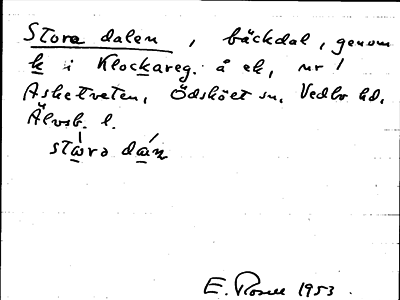 Stora dalen, bäckdal, genom
k i Klockareg. å ek, nr 1
Asketveten, Ödsköet sn. Vedbo hd.
Älvsb. l.
stora dan
E. Rosell 1953.